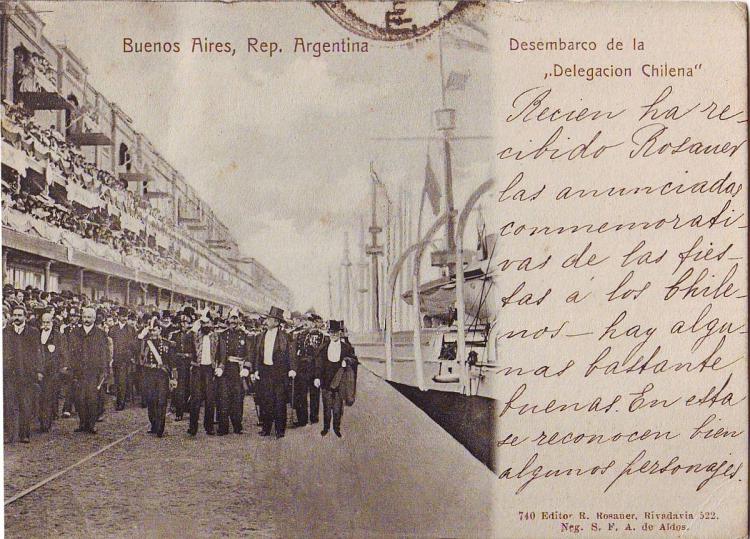 Buenos Aires, Rep. Argentina
Desembarco de la
„Delegacion Chilena"
Recien ha re-
cibido Rosauer
las anunciadas
conmemorati-
vas de las fies-
tas á los Chile-
nos – hay algu-
nas bastante
buenas. En esta
se reconocen bien
algunos personajes.
740 Editor R. Rosauer, Rivadavia 522.
Neg. S. F. A. de Aldos.